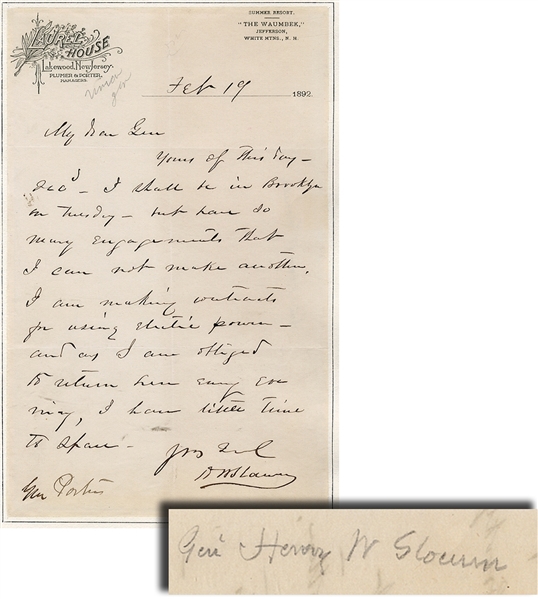 LAUREL HOUSE
Lakewood, New Jersey.
PLUMER & PORTER,
MANAGERS.
SUMMER RESORT.
"THE WAUMBEK,"
JEFFERSON,
WHITE MTNS., N. H.
Union
Gen
Feb 19 1892.
My Dear Gen
Yours of this day –
I shall be in Brooklyn
on Tuesday – but have so
many engagements that
I can not make another.
I am making contracts
for using electric power –
and as I am obliged
to return here every eve
ning, I have little time
to spare –
Yrs Truly
H W Slocum
Gen Porter
Genl Henry W Slocum